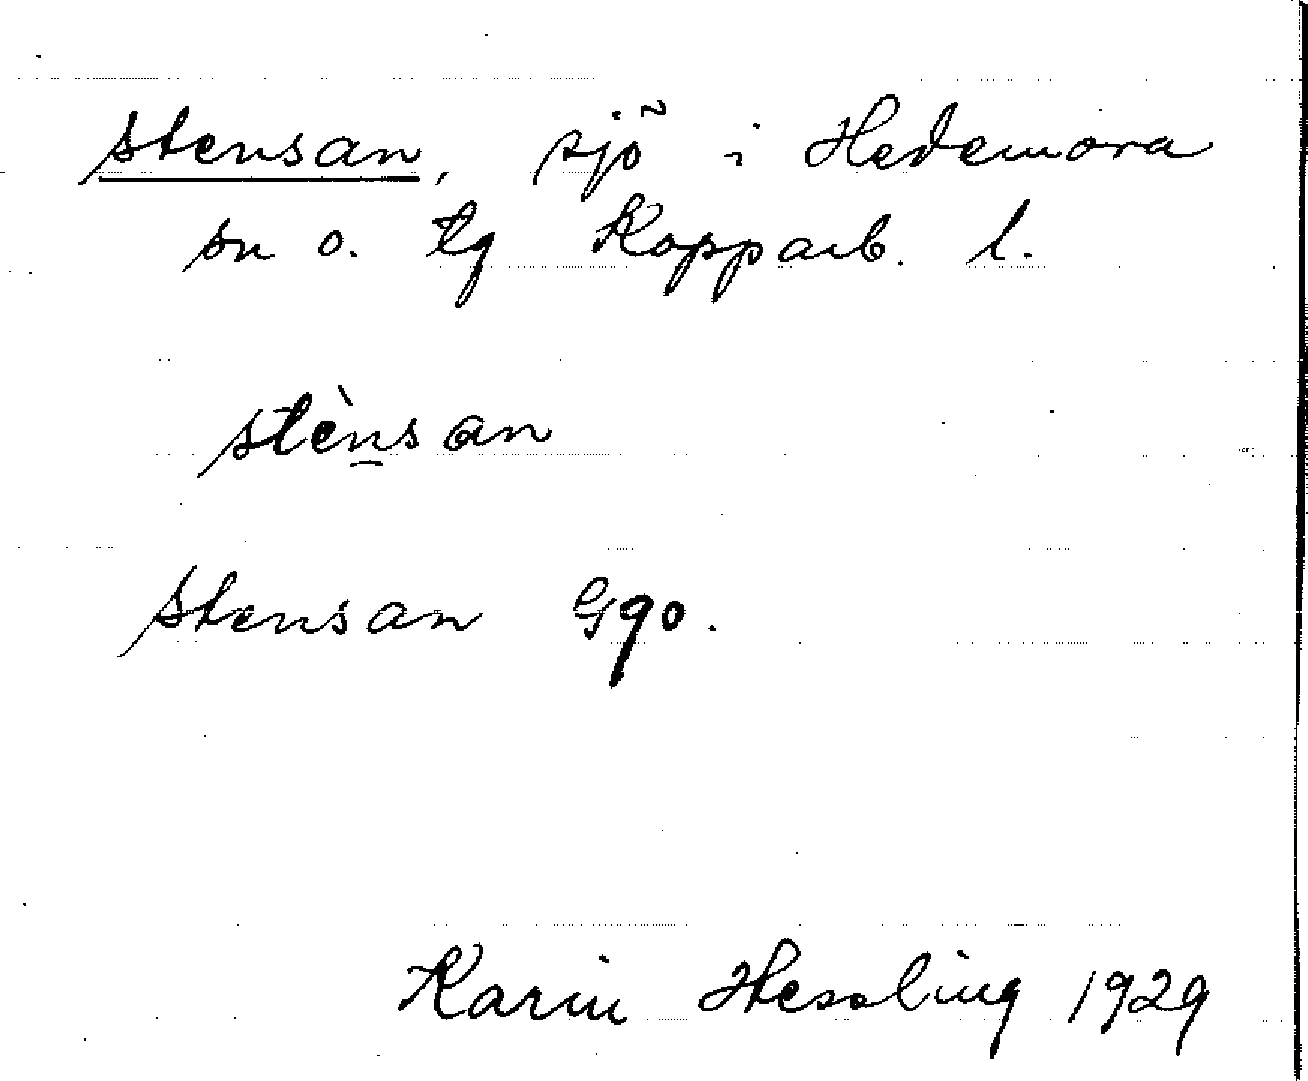 Stensan, sjö i Hedemora
sn o. tg Kopparb. l.
stènsan
Stensan Ggo.
Karin Hessling 1929